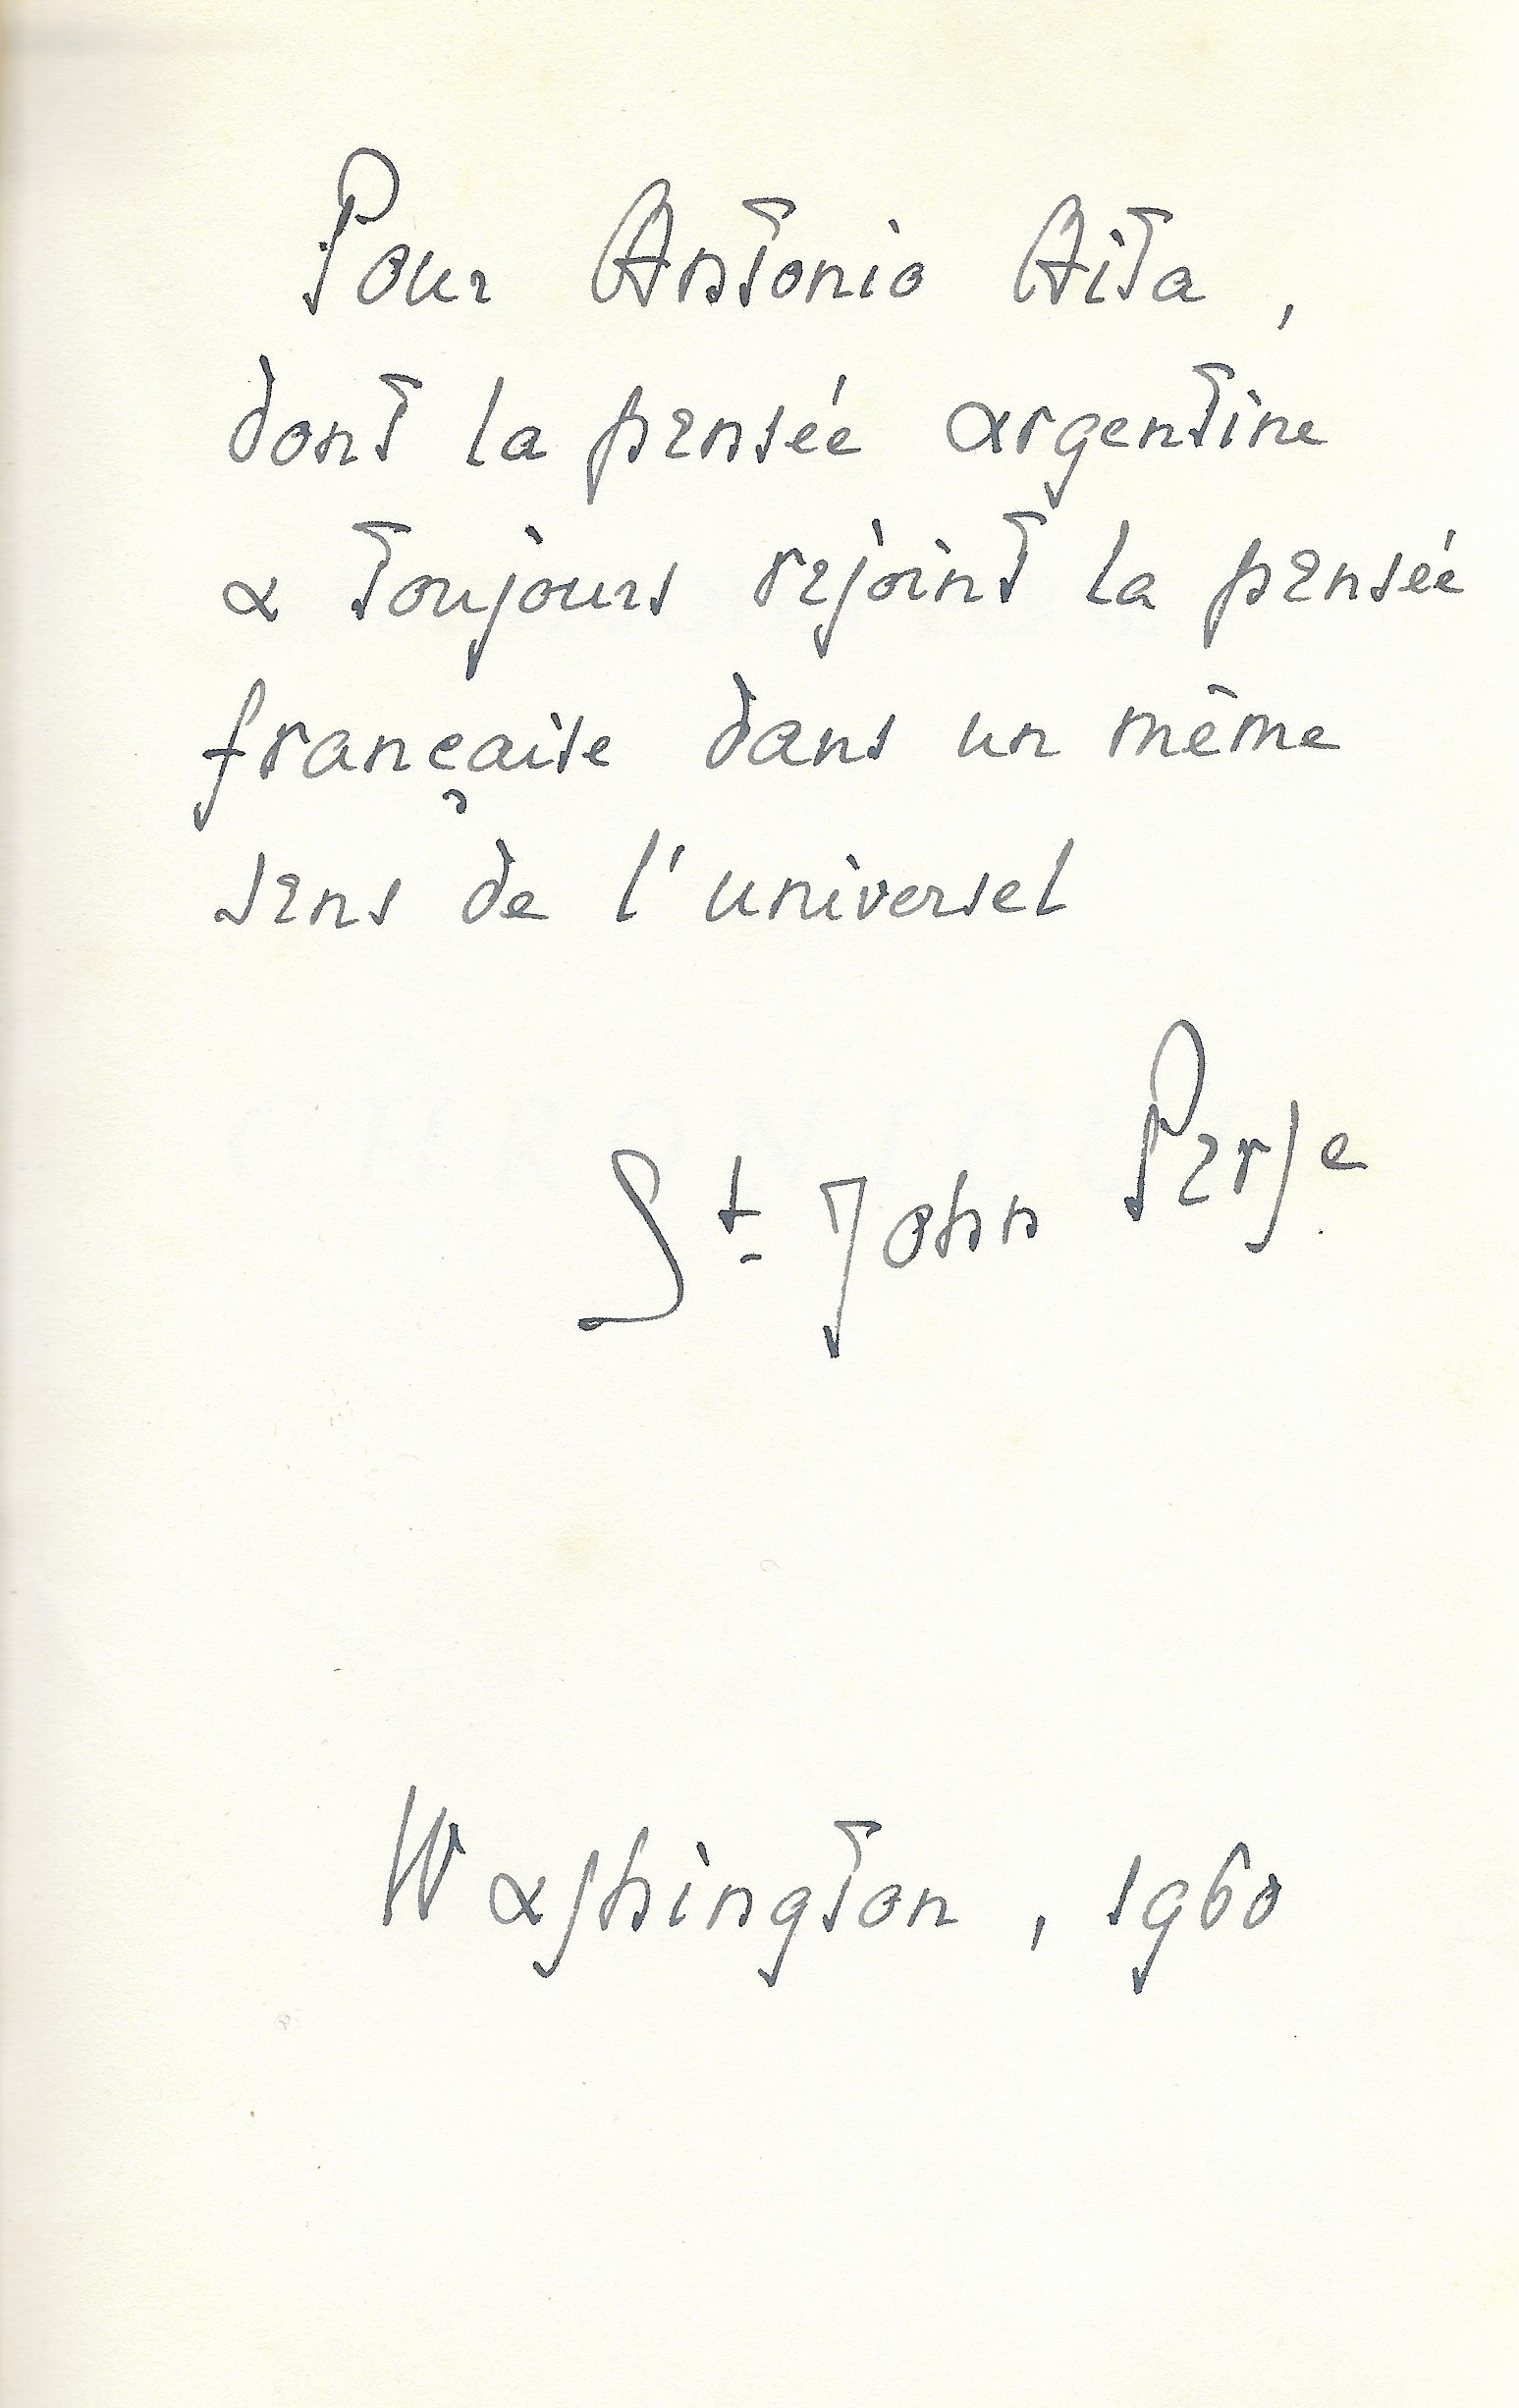 Pour Antonio Aita,
dont la pensée argentine
a toujours rejoint la pensée
française dans un même
sens de l'universel
St. John Perse
Washington, 1960